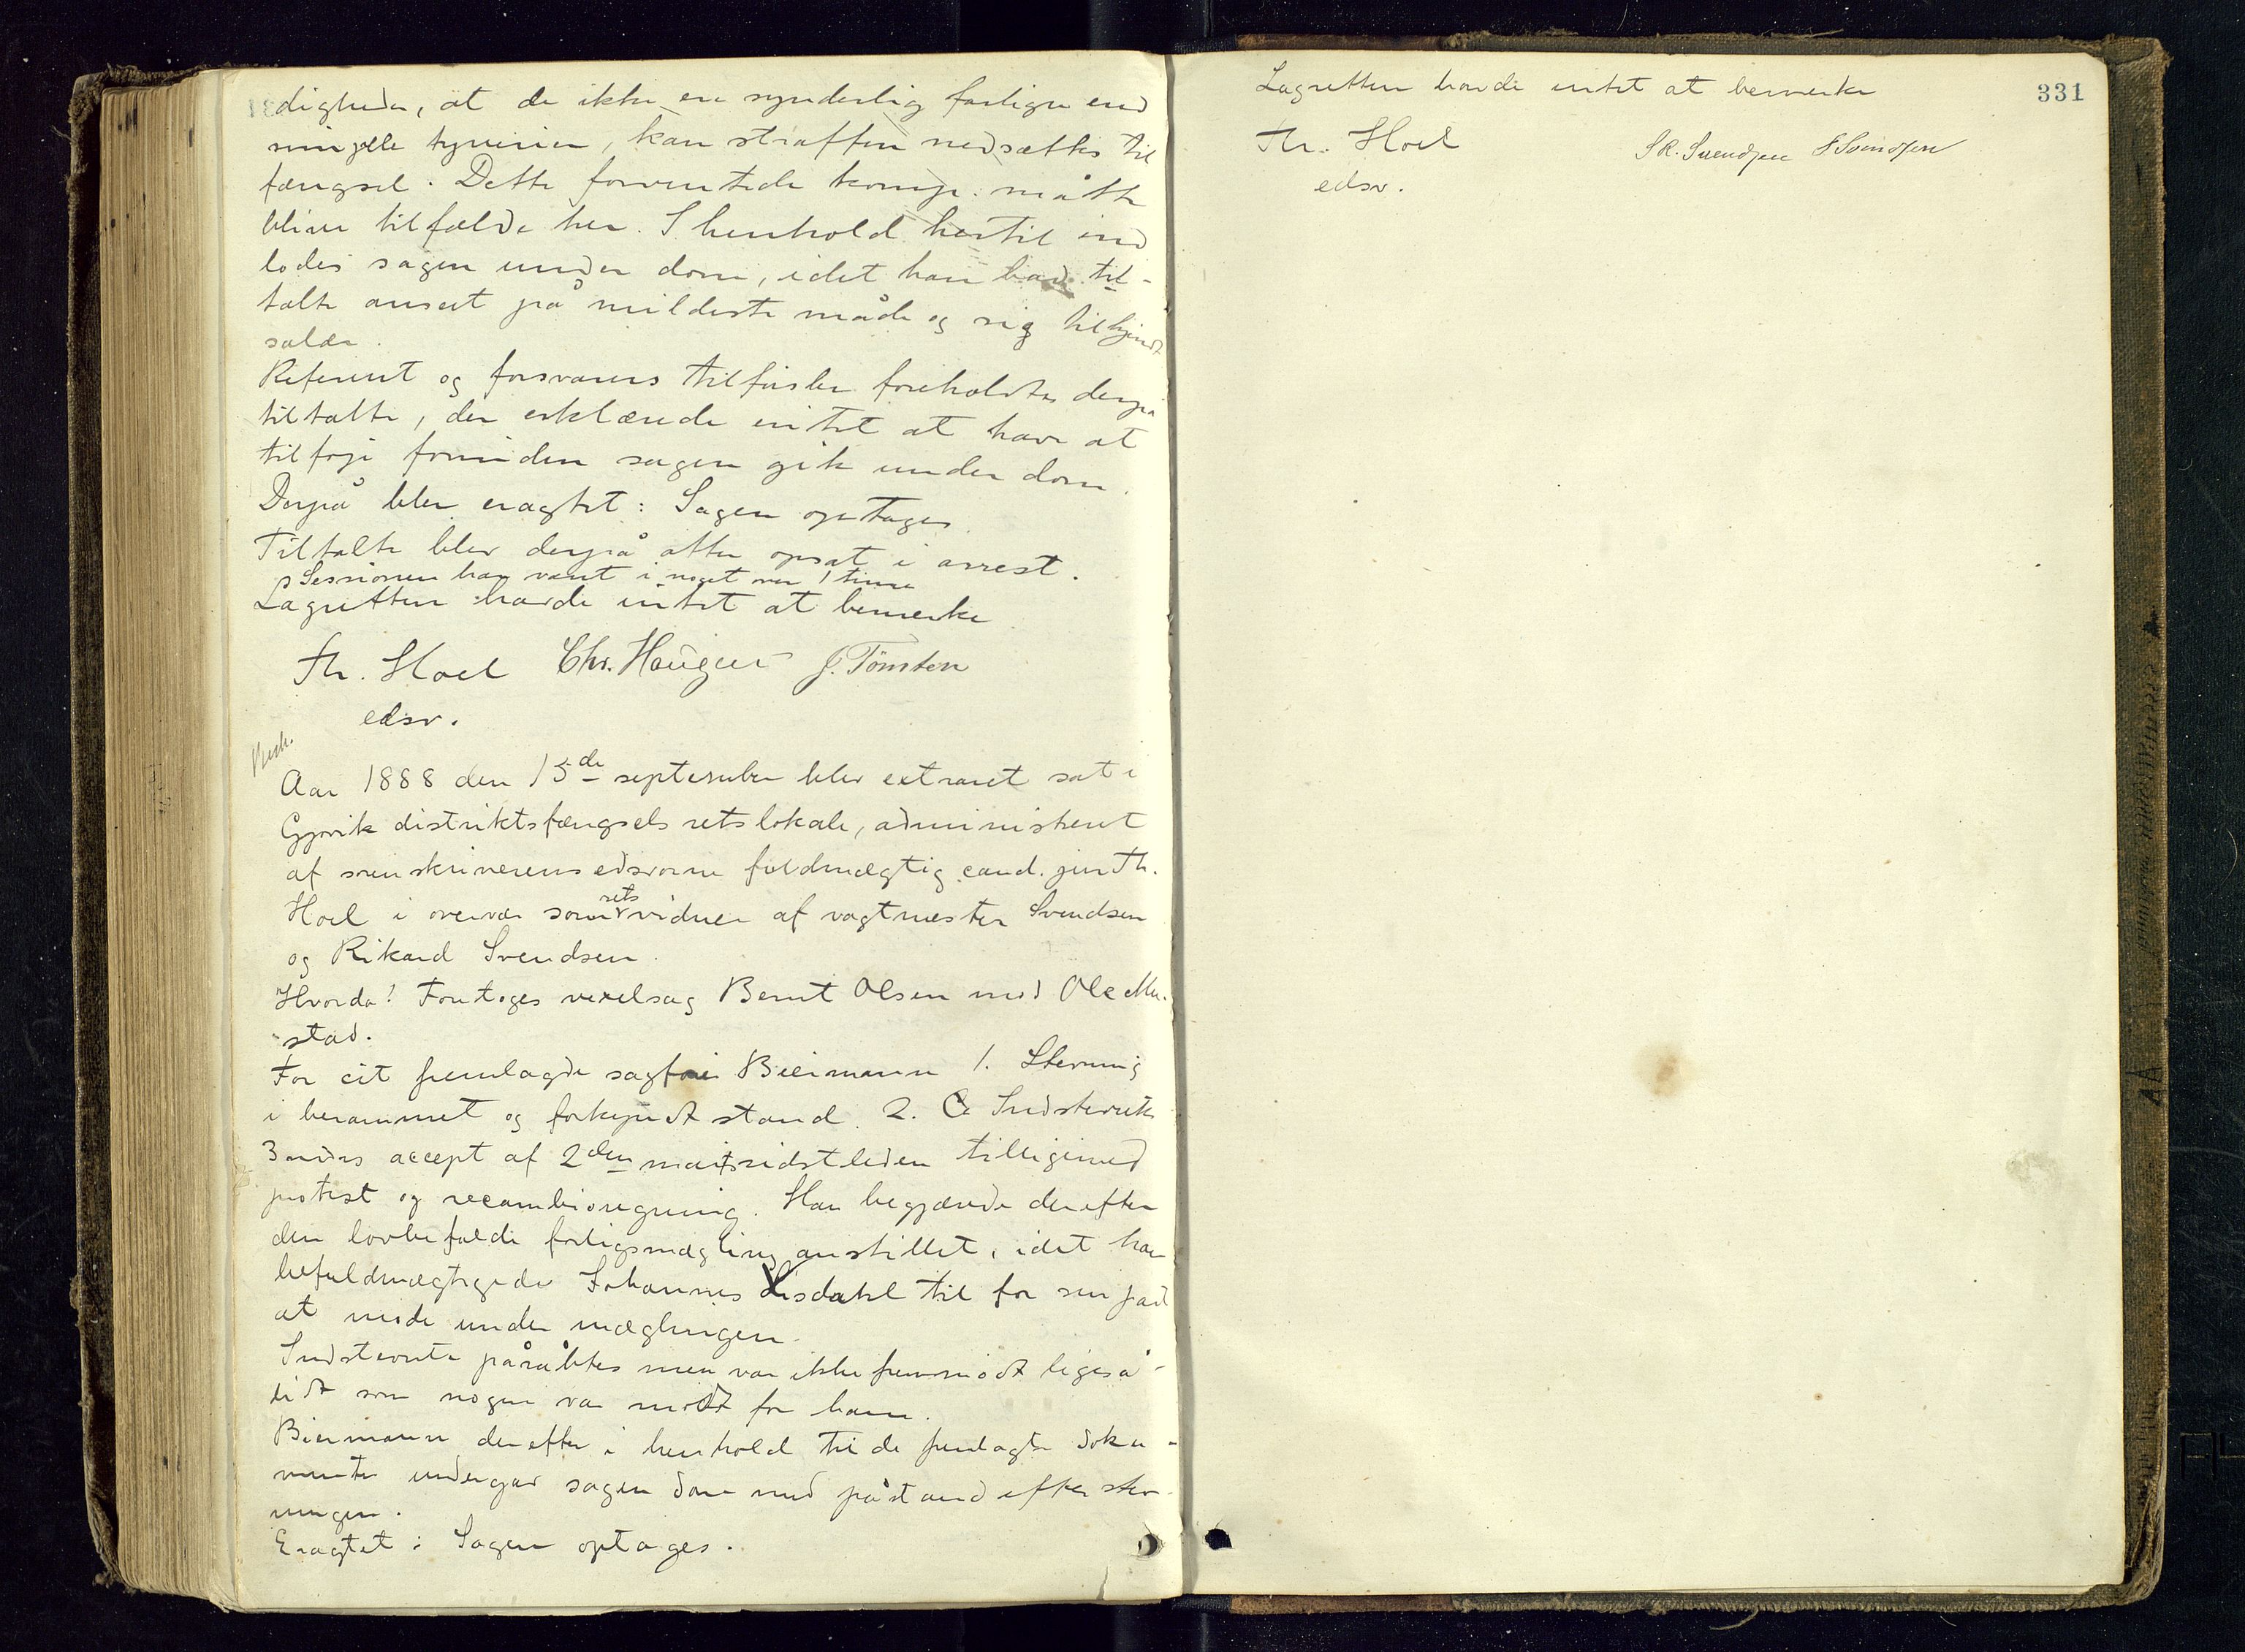 digheder, at de ikke ere synderlig farligere end
simple tyverier, kan straffen nedsættes til
fængsel. Dette formentede komp: måtte
blive tilfælde her. I henhold hertil ind
lodes sagen under dom, idet han bad til-
talte anseet på mildeste måde og sig tilkjendt
salær.
Referent og forsvarers tilførsler foreholdtes derpå
tiltalte, der erklærede intet at have at
tilføje forinden sagen gik under dom.
Derpå blev eragtet: Sagen optages
Tiltalte blev derpå atter opsat i arrest.
Sessionen har varet i noget over 1 time
Lagretten havde intet at bemerke
Th. Hoel Chr. Hauger J. Tømten
edsv.
Besk.
Aar 1888 den 15de september blev extraret sat i
Gjøvik distriktsfængsels retslokale, administreret
af sorenskriverens edsvorne fuldmægtig cand. jur Th.
Hoel i overvær som retsvidner af vagtmester Svendsen
og Rikard Svendsen.
Hvorda! Foretoges vexelsag Bernt Olsen mod Ole Mu-
stad.
For cit fremlagde sagfører Biermann 1. Stevning
i berammet og forkyndt stand. 2. Indstevnte
3 mdrs accept af 2den mai sidstleden tilligemed
protest og recambioregning. Han begjærede derefter
den lovbefalede forligsmægling anstillet, idet han
befuldmægtigede Johannes Lisdahl til for sin part
at møde under mæglingen.
Indstevnte påråbtes men var ikke fremmødt ligeså-
lidt som nogen var mødt for ham.
Biermann derefter i henhold til de fremlagte doku-
menter undergav sagen dom med påstand efter stev-
ningen.
Eragtet: Sagen optages.
331
Lagretten havde intet at bemerke
Th. Hoel S R. Svendsen S Svendsen
edsv.